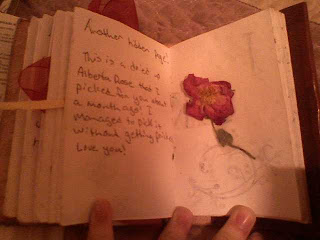 Another hidden page!
This is a dried
Alberta Rose that I
picked for you about
a month ago! I
managed to pick it
without getting pricked
Love you!